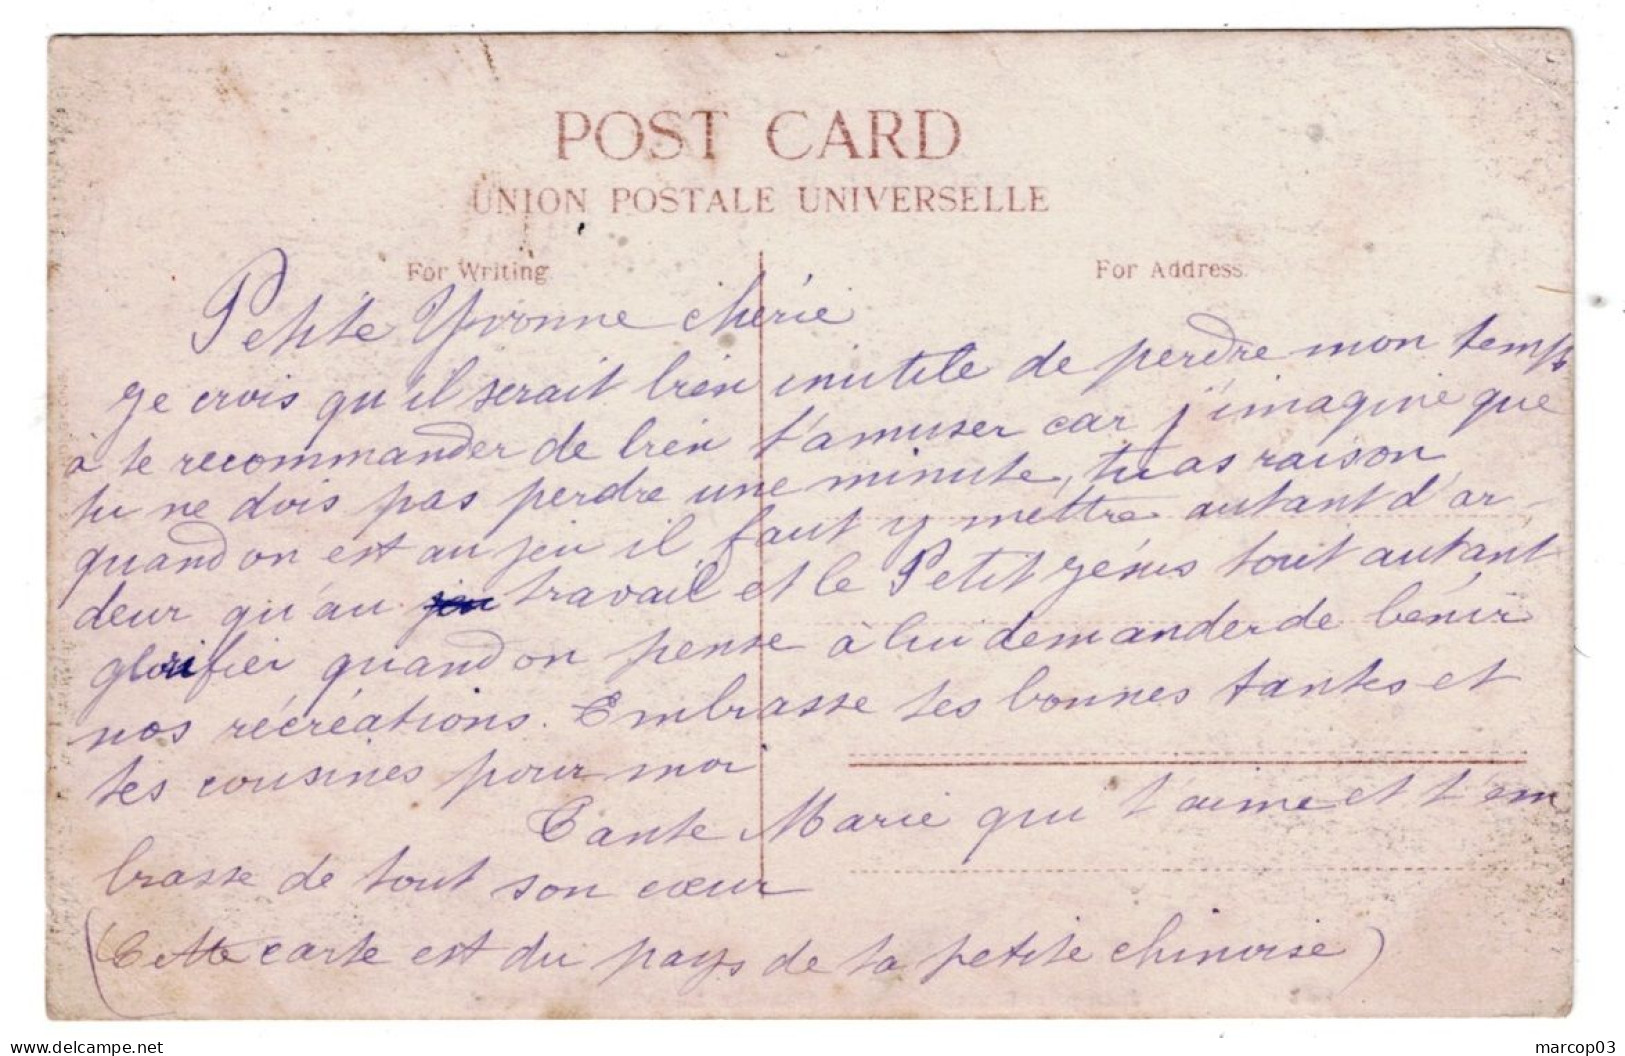 POST CARD
UNION POSTALE UNIVERSELLE
For Writing
For Address.
Petite Yvonne chérie
Je crois qu'il serait bien inutile de perdre mon temps
à te recommander de bien t'amuser car j'imagine que
tu ne dois pas perdre une minute, tu as raison
quand on est au jeu il faut y mettre autant d'ar-
deur qu'au jeu travail et le Petit Jésus tout autant
glorifier quand on pense à lui demander de bénir
nos récréations. Embrasse tes bonnes tantes et
tes cousines pour moi
Tante Marie qui t'aime et t'em
brasse de tout son cœur
(Cette carte est du pays de ta petite chinoise)
delcampe.net
marcop03